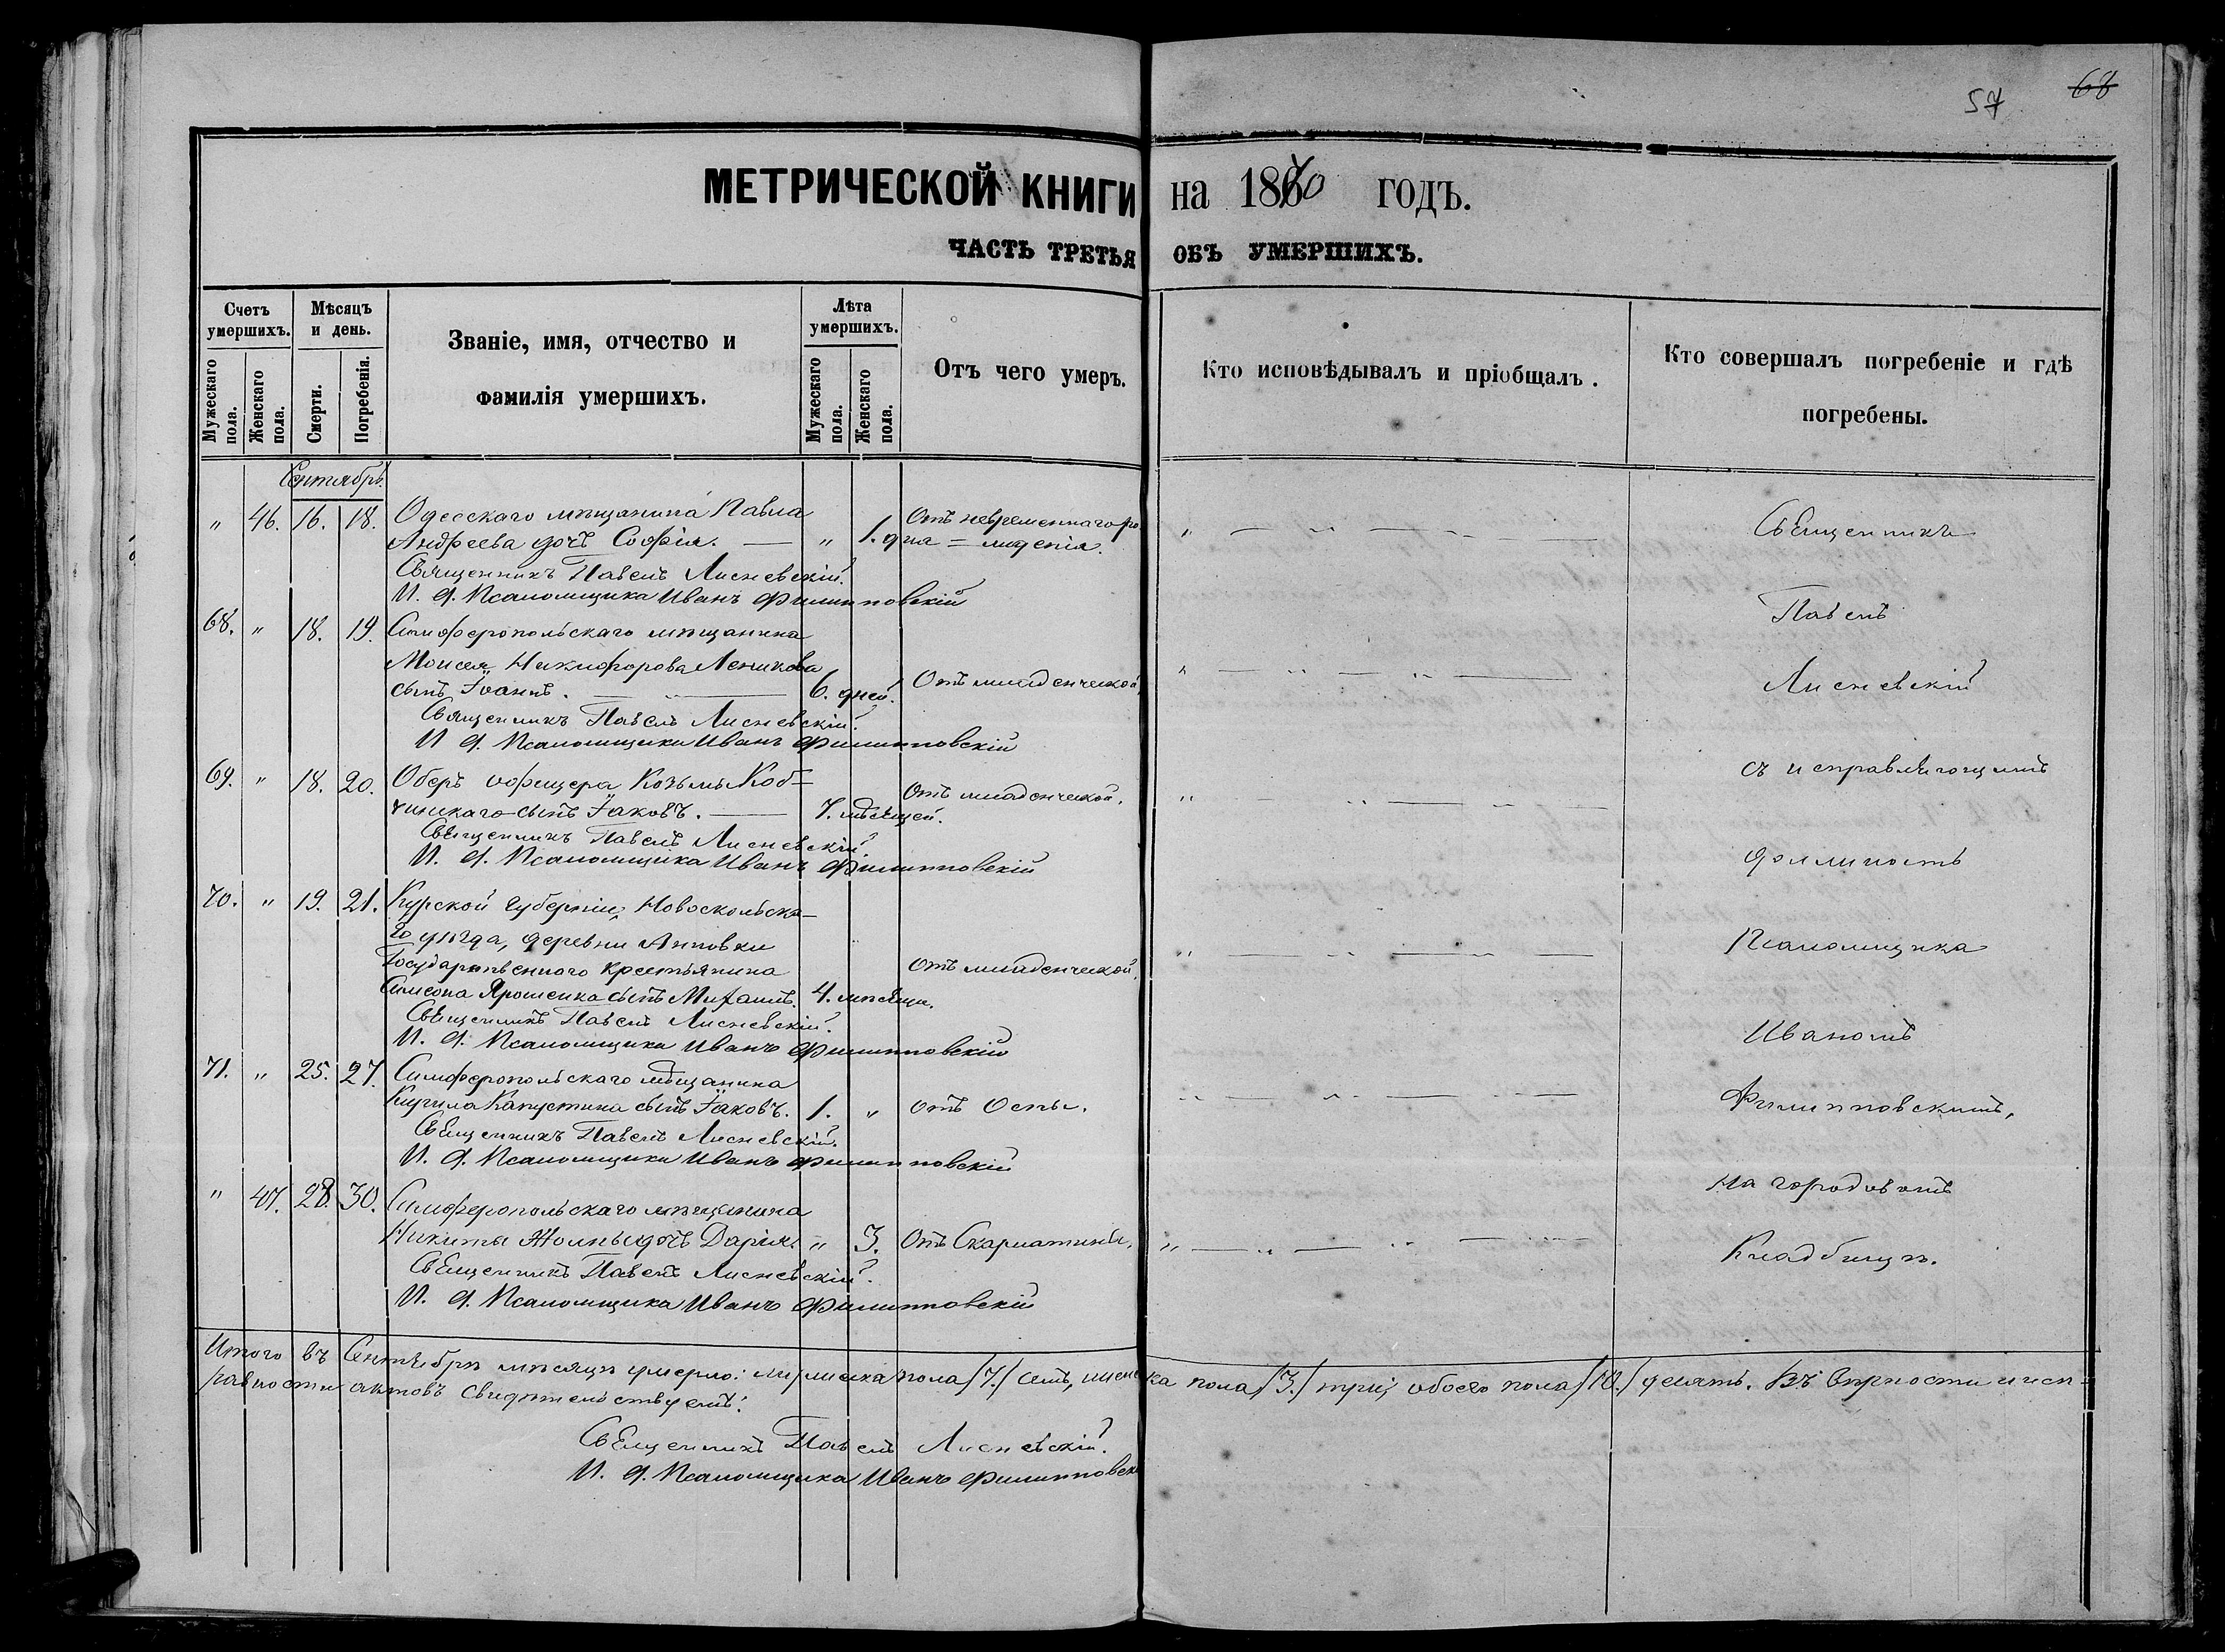 57 68
МЕТРИЧЕСКОЙ КНИГИ на 1870 годъ.
ЧАСТЬ ТРЕТЬЯ ОБЪ УМЕРШИХЪ.
Счетъ умершихъ.
Мужескаго пола.
Женскаго пола.
Мѣсяцъ и день.
Смерти.
Погребенія.
Званіе, имя, отчество и
фамилія умершихъ.
Лѣта умершихъ.
Мужескаго пола.
Женскаго пола.
Отъ чего умеръ.
Кто исповѣдывалъ и пріобщалъ.
Кто совершалъ погребеніе и гдѣ
погребены.
Сентябрь.
" 46. 16. 18. Одесскаго мѣщанина Павла Отъ невременнаго ро
Андреева дочь Софія. — " 1. дня = жденія.
Священникъ Павелъ Лисневскій.
И. д. Псаломщика Иванъ Филипповскій
68. " 18. 19. Симферопольскаго мѣщанина
Моисея Никифорова
сынъ Іоаннъ. — 6. дней. Отъ младенческой
Священникъ Павелъ Лисневскій.
И д. Псаломщика Иванъ Филипповскій
69. " 18. 20. Оберъ офицера Козьмы Коб= Отъ младенческой.
чинскаго сынъ Іаковъ. — 7. мѣсяцей.
Священникъ Павелъ Лисневскій
И. д. Псаломщика Иванъ Филипповскій
70. " 19. 21. Курской Губерніи, Новоскольска-
го уѣзда, деревни Анповки
Государственного крестьянина Отъ младенческой.
Симеона Ярошенка сынъ Михаилъ. 4. мѣсяца.
Священникъ Павелъ Лисневскій.
И. д. Псаломщика Иванъ Филипповскій
71. " 25. 27. Симферопольскаго мѣщанина
Кирила Капустина сынъ Іаковъ. 1. " отъ Оспы.
Священникъ Павелъ Лисневскій.
И. д. Псаломщика Иванъ Филипповскій
" 47. 28. 30. Симферопольскаго мѣщанина
Никиты дочь Дарія. " 3. Отъ Скарлатины.
Священникъ Павелъ Лисневскій.
И. д. Псаломщика Иванъ Филипповскій
Священникъ
Павелъ
Лисневскій
съ исправляющимъ
должность
Псаломщика
Иваномъ
Филипповскимъ,
на городовомъ
Кладбищѣ.
Итого въ Сентябрѣ мѣсяцѣ умерло: мужеска пола /7./ семь, женска пола /3./ три, обоего пола /10./ десять. Въ вѣрности и исп=
равности актовъ свидѣтельствуемъ:
Священникъ Павелъ Лисневскій.
И. д. Псаломщика Иванъ Филипповскі